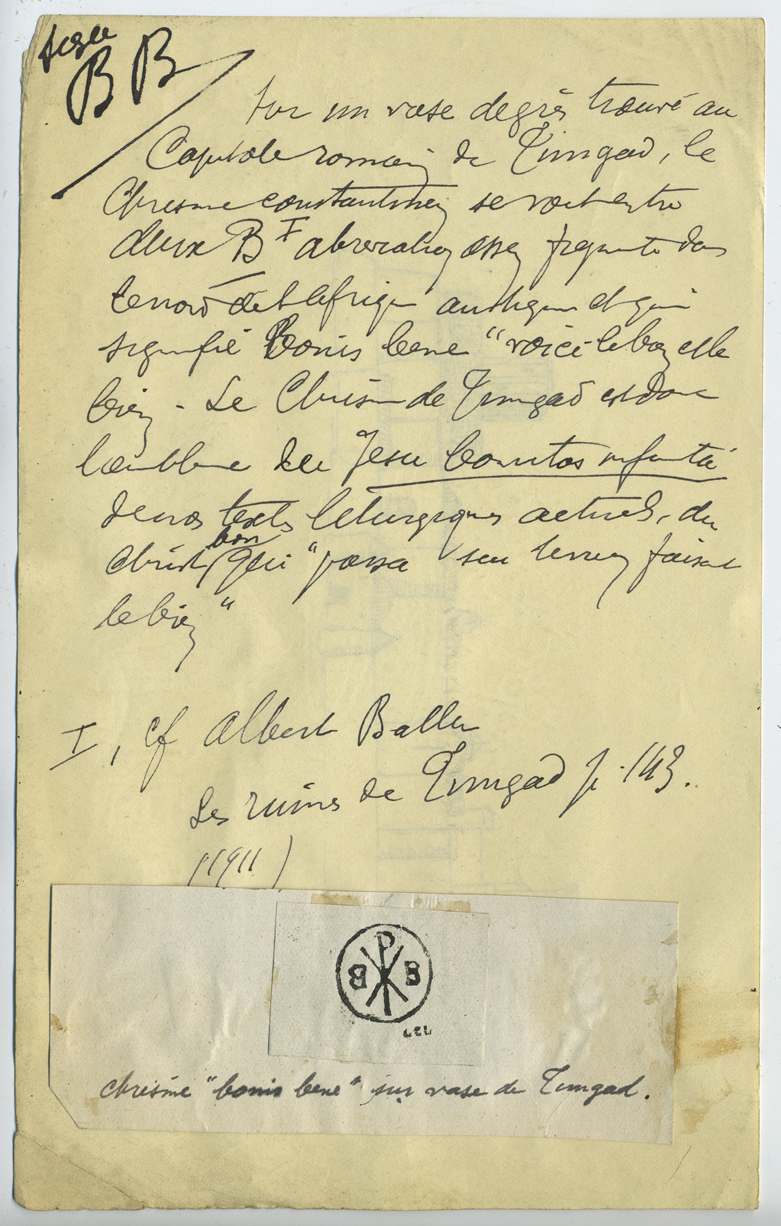 sigle
B B
Sur un vase de grès trouvé au
Capitole romain de Timgad, le
Chrisme constantinien se voit entre
deux B I abréviation assez fréquente dans
le nord de l'Afrique antique et qui
signifie Bonis bene "voici le bon et le
bien - Le Chrisme de Timgad est donc
l'emblème du Jesu bonitas infinita
de nos textes liturgiques actuels, du
Christ bon qui "passa sur terre en faisant
le bien"
I, cf Albert Ballu
Les ruines de Timgad p. 143.
(1911)
P
B B
LCL
chrisme "bonis bene" sur vase de Timgad.